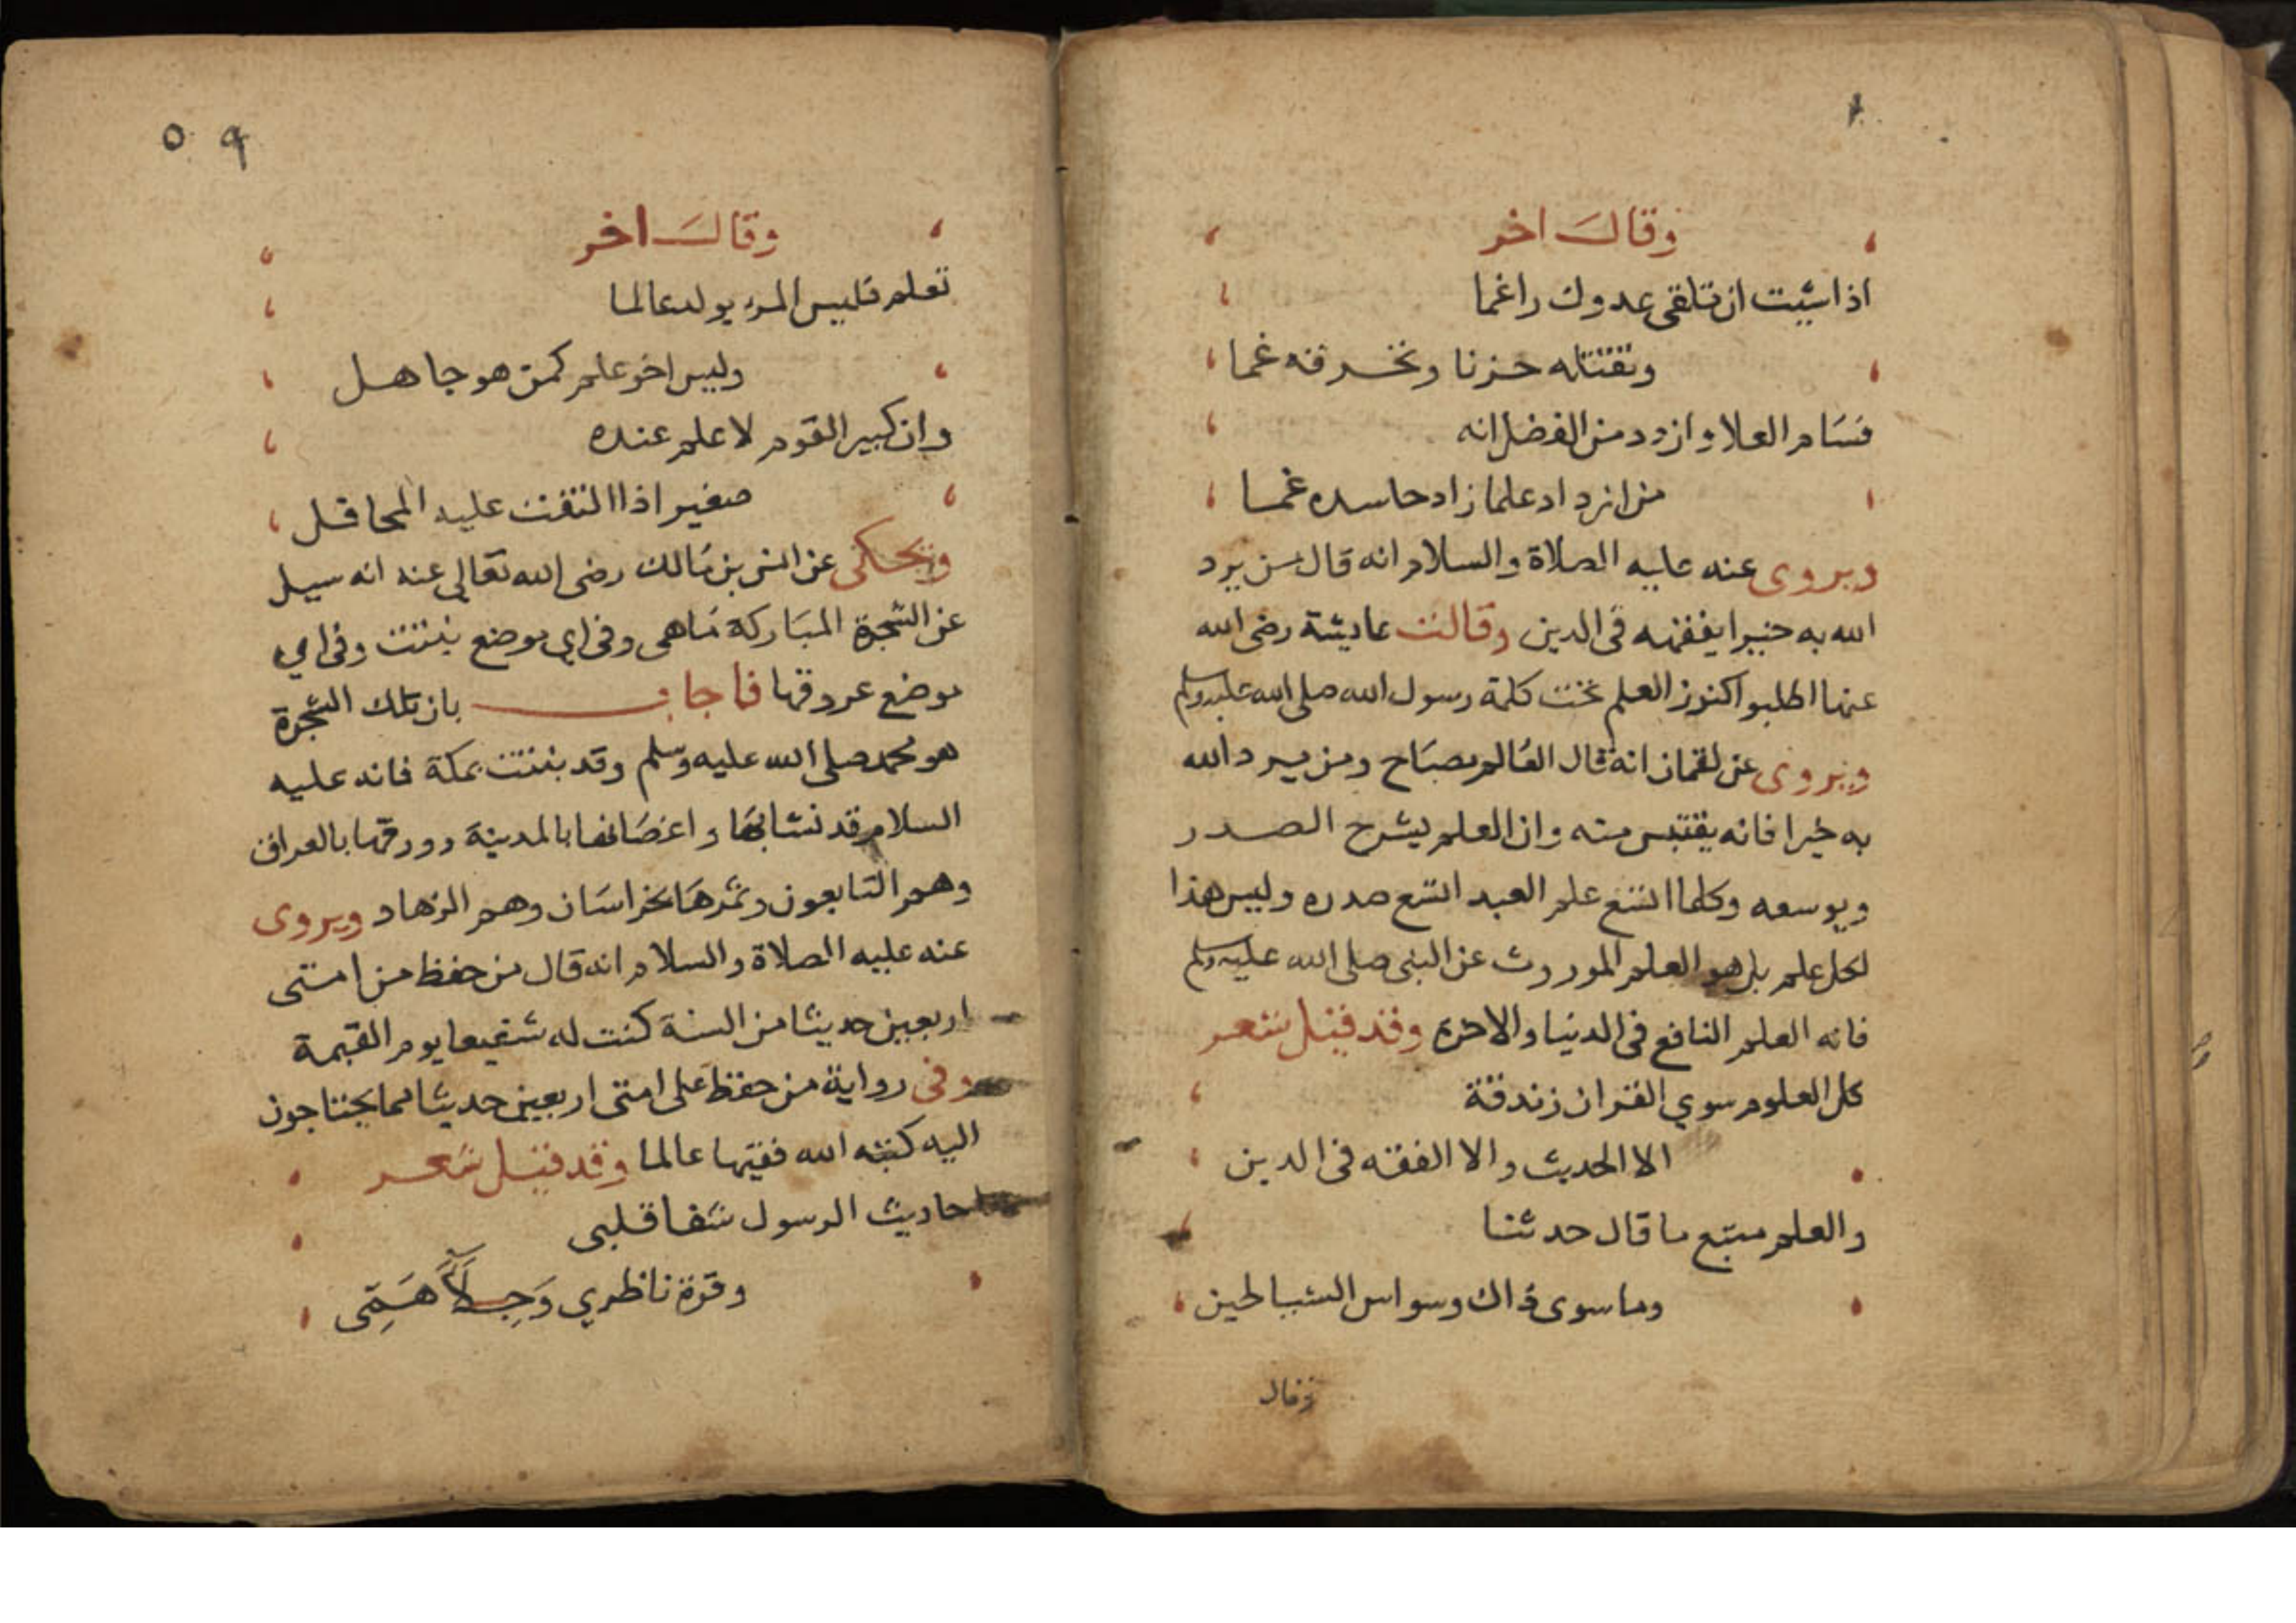 وقال اخر
اذا شيت ان تلقى عدوك راغما
وتقتله حزنا وتحرقه غما
فسام العلا وازدد من الفضل انه
من ازداد علما زاد حاسده غما
ويروى عنه عليه الصلاة والسلام انه قال من يرد
الله به خيرا يفقهه في الدين وقالت عايشة رضى الله
عنها اطلبوا كنوز العلم تحت كلمة رسول الله صلى الله عليه وسلم
ويروى عن لقمان انه قال العالم مصباح ومن يرد الله
به خيرا فانه يقتبس منه وان العلم يشرح الصدر
ويوسعه وكلما اتسع علم العبد اتسع صدره وليس هذا
لكل علم بل هو العلم الموروث عن النبى صلى الله عليه وسلم
فانه العلم النافع فى الدنيا والاخرة وقد قيل شعر
كل العلوم سوي القران زندقة
الا الحديث والا الفقه فى الدين
والعلم متبع ما قال حدثنا
وما سوى ذاك وسواس الشياطين
وقال
٥٩
وقال اخر
تعلم فليس المرء يولد عالما
وليس اخو علم كمن هو جاهل
وان كبير القوم لا علم عنده
صغير اذا التفت عليه المحافل
ويحكى عن انس بن مالك رضى الله تعالى عنه انه سيل
عن الشجرة المباركة ماهى وفى اي موضع نبتت وفى اي
موضع عروقها فاجاب بان تلك الشجرة
هو محمد صلى الله عليه وسلم وقد نبتت بمكة فانه عليه
السلام قد نشا بها واغصانها بالمدينة وورقها بالعراق
وهم التابعون وثمرها بخراسان وهم الزهاد ويروى
عنه عليه الصلاة والسلام انه قال من حفظ من امتى
اربعين حديثا من السنة كنت له شفيعا يوم القيمة
وفى رواية من حفظ على امتى اربعين حديثا مما يحتاجون
اليه كتبه الله فقيها عالما وقد قيل شعر
احاديث الرسول شفا قلبى
وقرة ناظري وَجِلآ هَمِّى